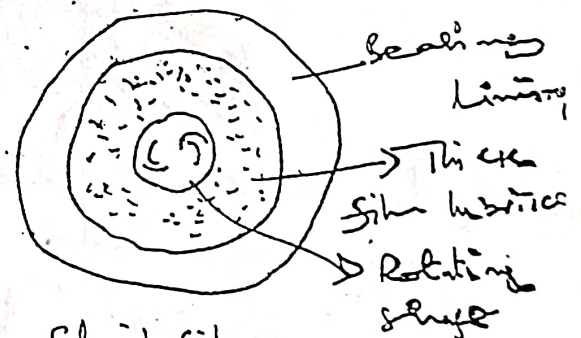 Bearing
Lining
Thick
film lubrica
Rotating
shaft
Fluid film